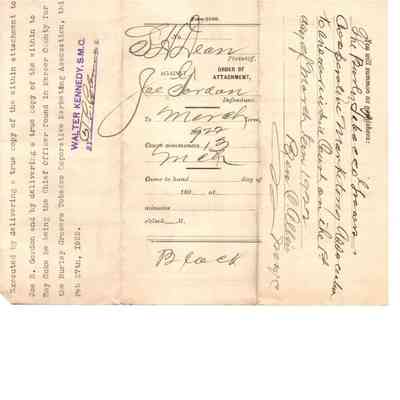 Executed by delivering a true copy of the within attachment to
Joe S. Gordon and by delivering a true copy of the within to
he being the Chief Officer found in Mercer County for
the Burley Growers Tobacco Coporative Marketing Association, this
Feb 27th, 1922.
WALTER KENNEDY, S.M.C.
S. H. Dean
Plaintiff,
AGAINST
ORDER OF
ATTACHMENT,
Joe Gordon
Defendant.
To March Term,
1922
Court commences 13
Mch
Came to hand day of
190 at
minutes
o'clock M.
Black
You will summon as garnishee:
The Burley Tobacco Growers
Cooperative Marketing Association
to answer in said Court on the 1st
day of March term 1922
Ben C Allen